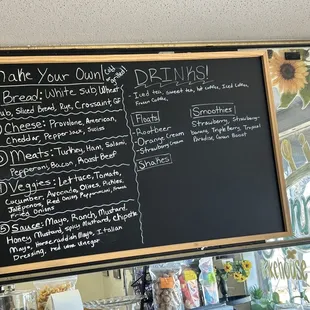 Make Your Own! Cold or grilled
Bread: White sub, Wheat
sub, Sliced Bread, Rye, Croissant, GF
Cheese: Provolone, American,
Cheddar, Pepperjack, Swiss
Meats: Turkey, Ham, Salami,
Pepperoni, Bacon, Roast Beef
Veggies: Lettuce, Tomato,
Cucumber, Avocado, Olives, Pickles
Jalapenos, Red Onion, Pepperoncini,
Fried Onions
5 Sauce: Mayo, Ranch, Mustard
Honey Mustard, Spicy Mustard, chipotle
Mayo, Horseradish Mayo, Italian
Dressing, red wine Vinegar
DRINKS!
- Iced tea, sweet tea, hot coffee, Iced Latte,
Frozen Coffee
Floats
- Rootbeer
- Orange Cream
- Strawberry Cream
Shakes
Smoothies
Strawberry, Strawberry-
banana, Triple Berry, Tropical
Paradise,